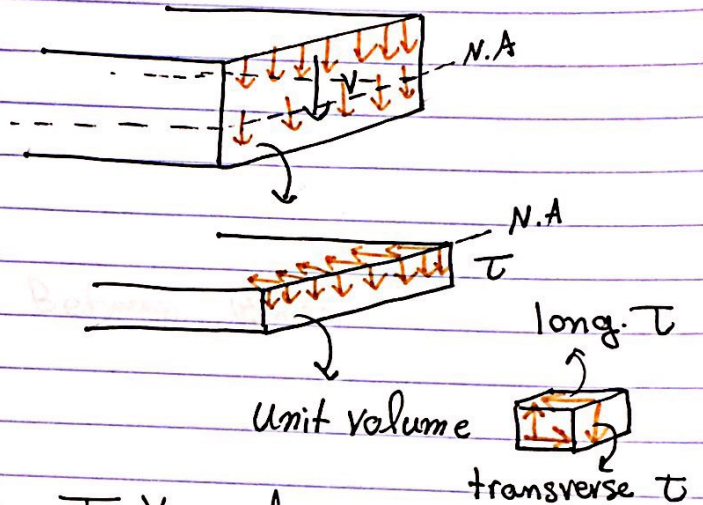 N.A
V
N.A
τ
long. τ
Unit volume
transverse τ